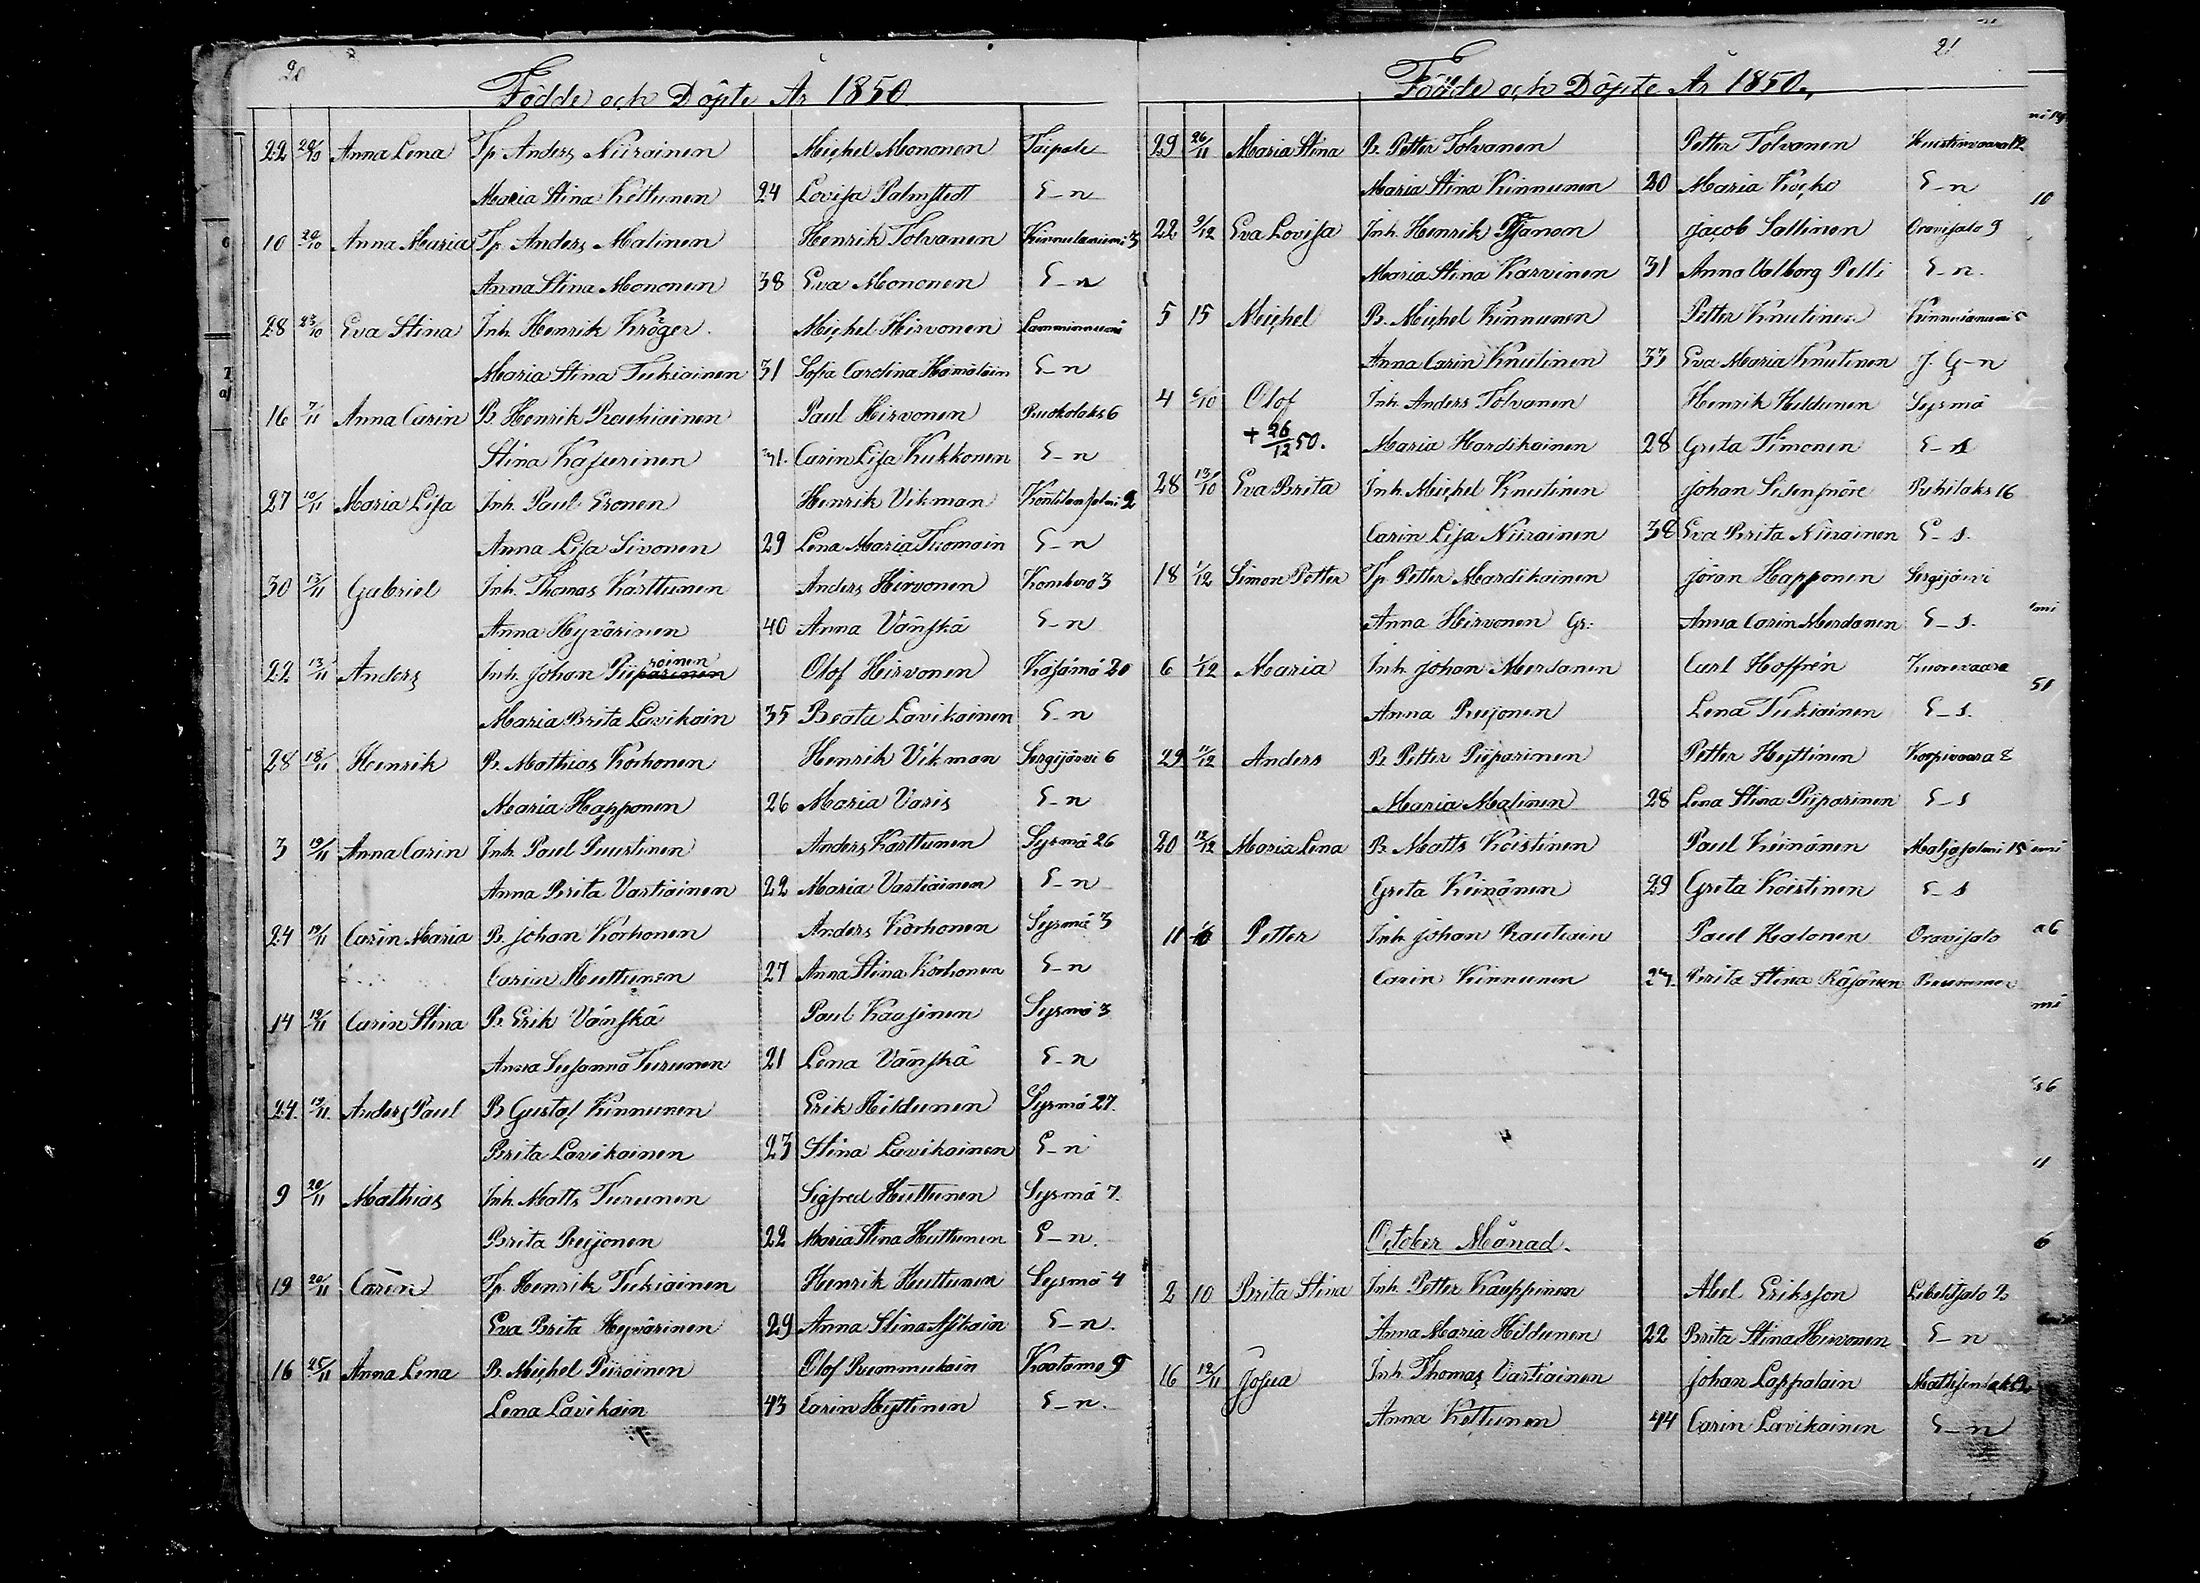 20
Födde och Döpte År 1850
22 20/10 Anna Lena Tp. Anders Niiroinen Michel Mononen Taipale
Maria Stina Kettunen 24 Lovisa Palmstedt E_n
10 20/10 Anna Maria Tp. Anders Malinen Henrik Tolvanen Kinnulaniemi 3
Anna Stina Mononen 38 Eva Mononen E_n
28 23/10 Eva Stina Inh. Henrik Kröger Michel Hirvonen
Maria Stina Tukiainen 31 Sofia Carolina Hämäläin E_n
16 7/11 Anna Carin B. Henrik Rautiainen Paul Hirvonen Ruokolaks 6
Stina Kasurinen Carin Lisa Kukkonen E_n
27 10/11 Maria Lisa Inh. Paul Eronen Henrik Vikman
Anna Lisa Sivonen 29 Lena Maria Tuomain E_n
30 13/11 Gabriel Inh. Thomas Karttunen Anders Hirvonen Kombero 3
Anna Hyvärinen 40 Anna Vänskä E_n
22 13/11 Anders Inh. Johan Piiparinen roinen Olof Hirvonen Käsämä 20
Maria Brita Lavikain 35 Beata Lavikainen E_n
28 18/11 Henrik B. Mathias Korhonen Henrik Vikman Sorgijärvi 6
Maria Happonen 26 Maria Varis E_n
3 19/11 Anna Carin Inh. Paul Puustinen Anders Karttunen Sysmä 26
Anna Brita Vartiainen 22 Maria Vartiainen E_n
24 19/11 Carin Maria B. Johan Korhonen Anders Korhonen Sysmä 3
Carin Huttunen 27 Anna Stina Korhonen E_n
14 19/11 Carin Stina B. Erik Vänskä Paul Kaasinen Sysmä 3
Anna Susanna Turunen 21 Lena Vänskä E_n
24. 19/11. Anders Paul B. Gustaf Kinnunen Erik Hildunen Sysmä 27.
Brita Lavikainen 23 Stina Lavikainen E_n
9 20/11 Mathias Inh. Matts Turunen Sigfred Huttunen Sysmä 7.
Brita Reijonen 22 Maria Stina Huttunen E_n.
19 20/11 Carin Tp. Henrik Tukiainen Henrik Huttunen Sysmä 4
Eva Brita Hyvärinen 29 Anna Stina Asikain E_n.
16 25/11 Anna Lena B. Michel Piiroinen Olof Rummukain Kaatamo 9
Lena Lavikain 43 Carin Hyttinen E_n.
21
Födde och Döpte År 1850.
29 26/11 Maria Stina B. Petter Tolvanen Petter Tolvanen
Maria Stina Kinnunen 20 Maria E_n
22 9/12 Eva Lovisa Inh. Henrik Jacob Sallinen Oravisalo 9
Maria Stina Karvinen 31 Anna Valborg Pelli E_n.
5 15 Michel B. Michel Kinnunen Petter Knutinen
Anna Carin Knutinen 33 Eva Maria Knutinen J. G_n
4 6/10 Olof Inh. Anders Tolvanen Henrik Hildunen Sysmä
+ 26/12 50. Maria Hardikainen 28 Greta Timonen E_s
28 13/10 Eva Brita Inh. Michel Knutinen Johan Puhilaks 16
Carin Lisa Niiroinen 38 Eva Brita Niiroinen E_s.
18 1/12 Simon Petter Tp. Petter Mardikainen Jöran Happonen Sorgijärvi
Anna Hirvonen Gr: Anna Carin Mersanen E_s.
6 1/12 Maria Inh. Johan Mersanen Carl Hoffrén
Anna Reijonen Lena Tukiainen E_s.
29 11/12 Anders B. Petter Piiparinen Petter Hyttinen Korpivaara 8
Maria Malinen 28 Lena Stina Piiparinen E_s
20 12/12 Maria Lena B. Matts Koistinen Paul Keinänen Maljasalmi 15
Greta Keinänen 29 Greta Koistinen E_s
11 Petter Inh. Johan Rautiain Paul Halonen Oravisalo
Carin Kinnunen 27. Brita Stina Räsänen
October Månad.
2 10 Brita Stina Inh. Petter Kauppinen Abel Eriksson
Anna Maria Hildunen 22 Brita Stina Hirvonen E_n
16 12/11 Josua Inh. Thomas Vartiainen Johan Lappalain
Anna Kettunen 44 Carin Lavikainen E_n